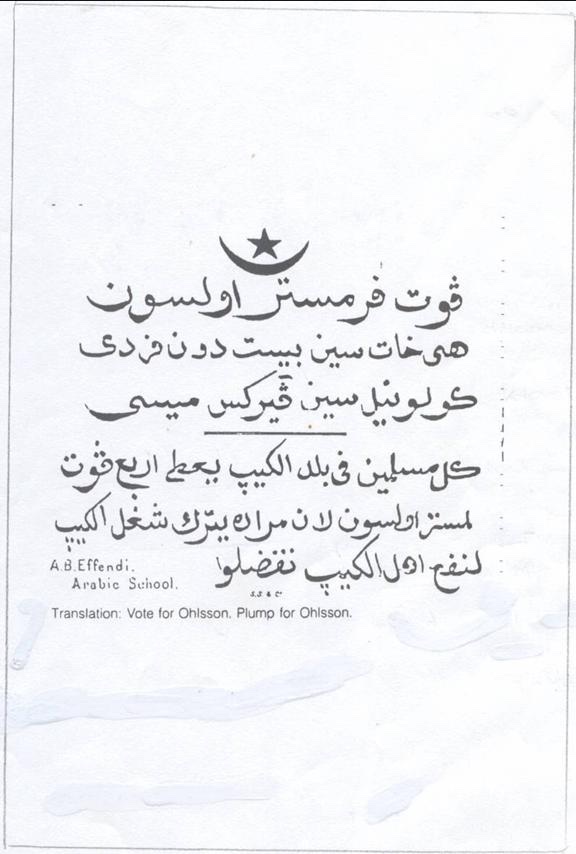 ڤوت فر مستر اولسون
هى خات سين بيست دون فر دى
كولونيل سين ڤيركس ميسى
كل مسلمين فى بلد الكيپ يعطى اربع ڤوت
لمستر اولسون لان مراده يترك شغل الكيپ
لنفع اهل الكيپ تفضلوا
A.B.Effendi.
Arabic School.
S.S & Co
Translation: Vote for Ohlsson. Plump for Ohlsson.